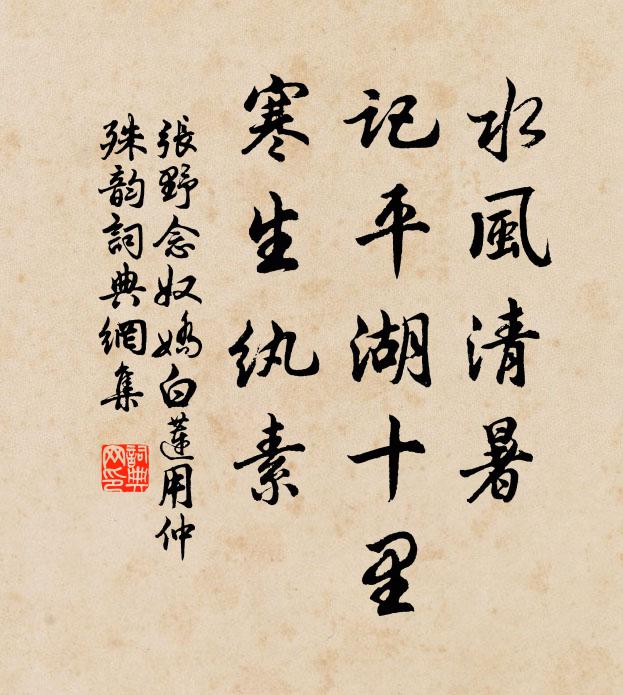 水風清暑
記平湖十里
寒生紈素
張野念奴嬌白蓮用仲
殊韵詞典網集
詞典網印